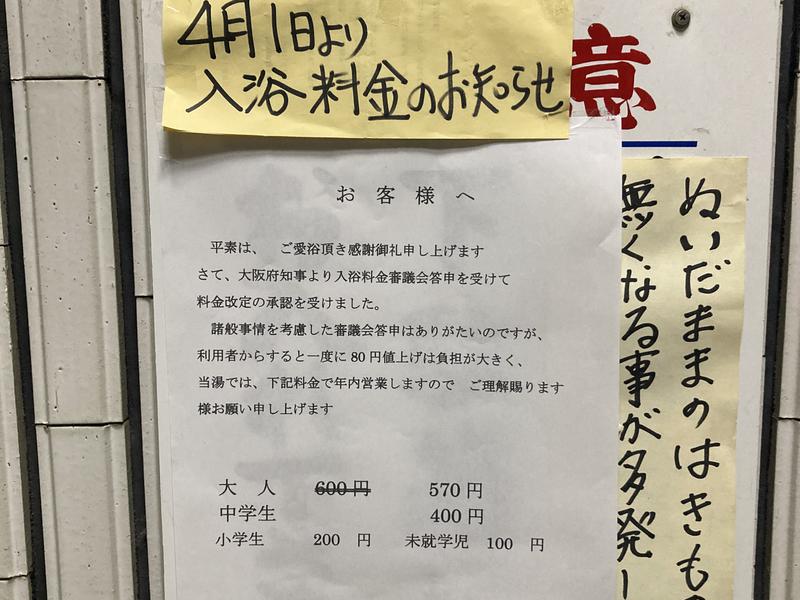 4月1日より
入浴料金のお知らせ
意
お客様へ
平素は、 ご愛浴頂き感謝御礼申し上げます
さて、大阪府知事より入浴料金審議会答申を受けて
料金改定の承認を受けました。
諸般事情を考慮した審議会答申はありがたいのですが、
利用者からすると一度に80円値上げは負担が大きく、
当湯では、下記料金で年内営業しますので ご理解賜ります
様お願い申し上げます
大 人 600円 570円
中学生 400円
小学生 200 円 未就学児 100 円
ぬいだままのはきもの
無くなる事が多発し